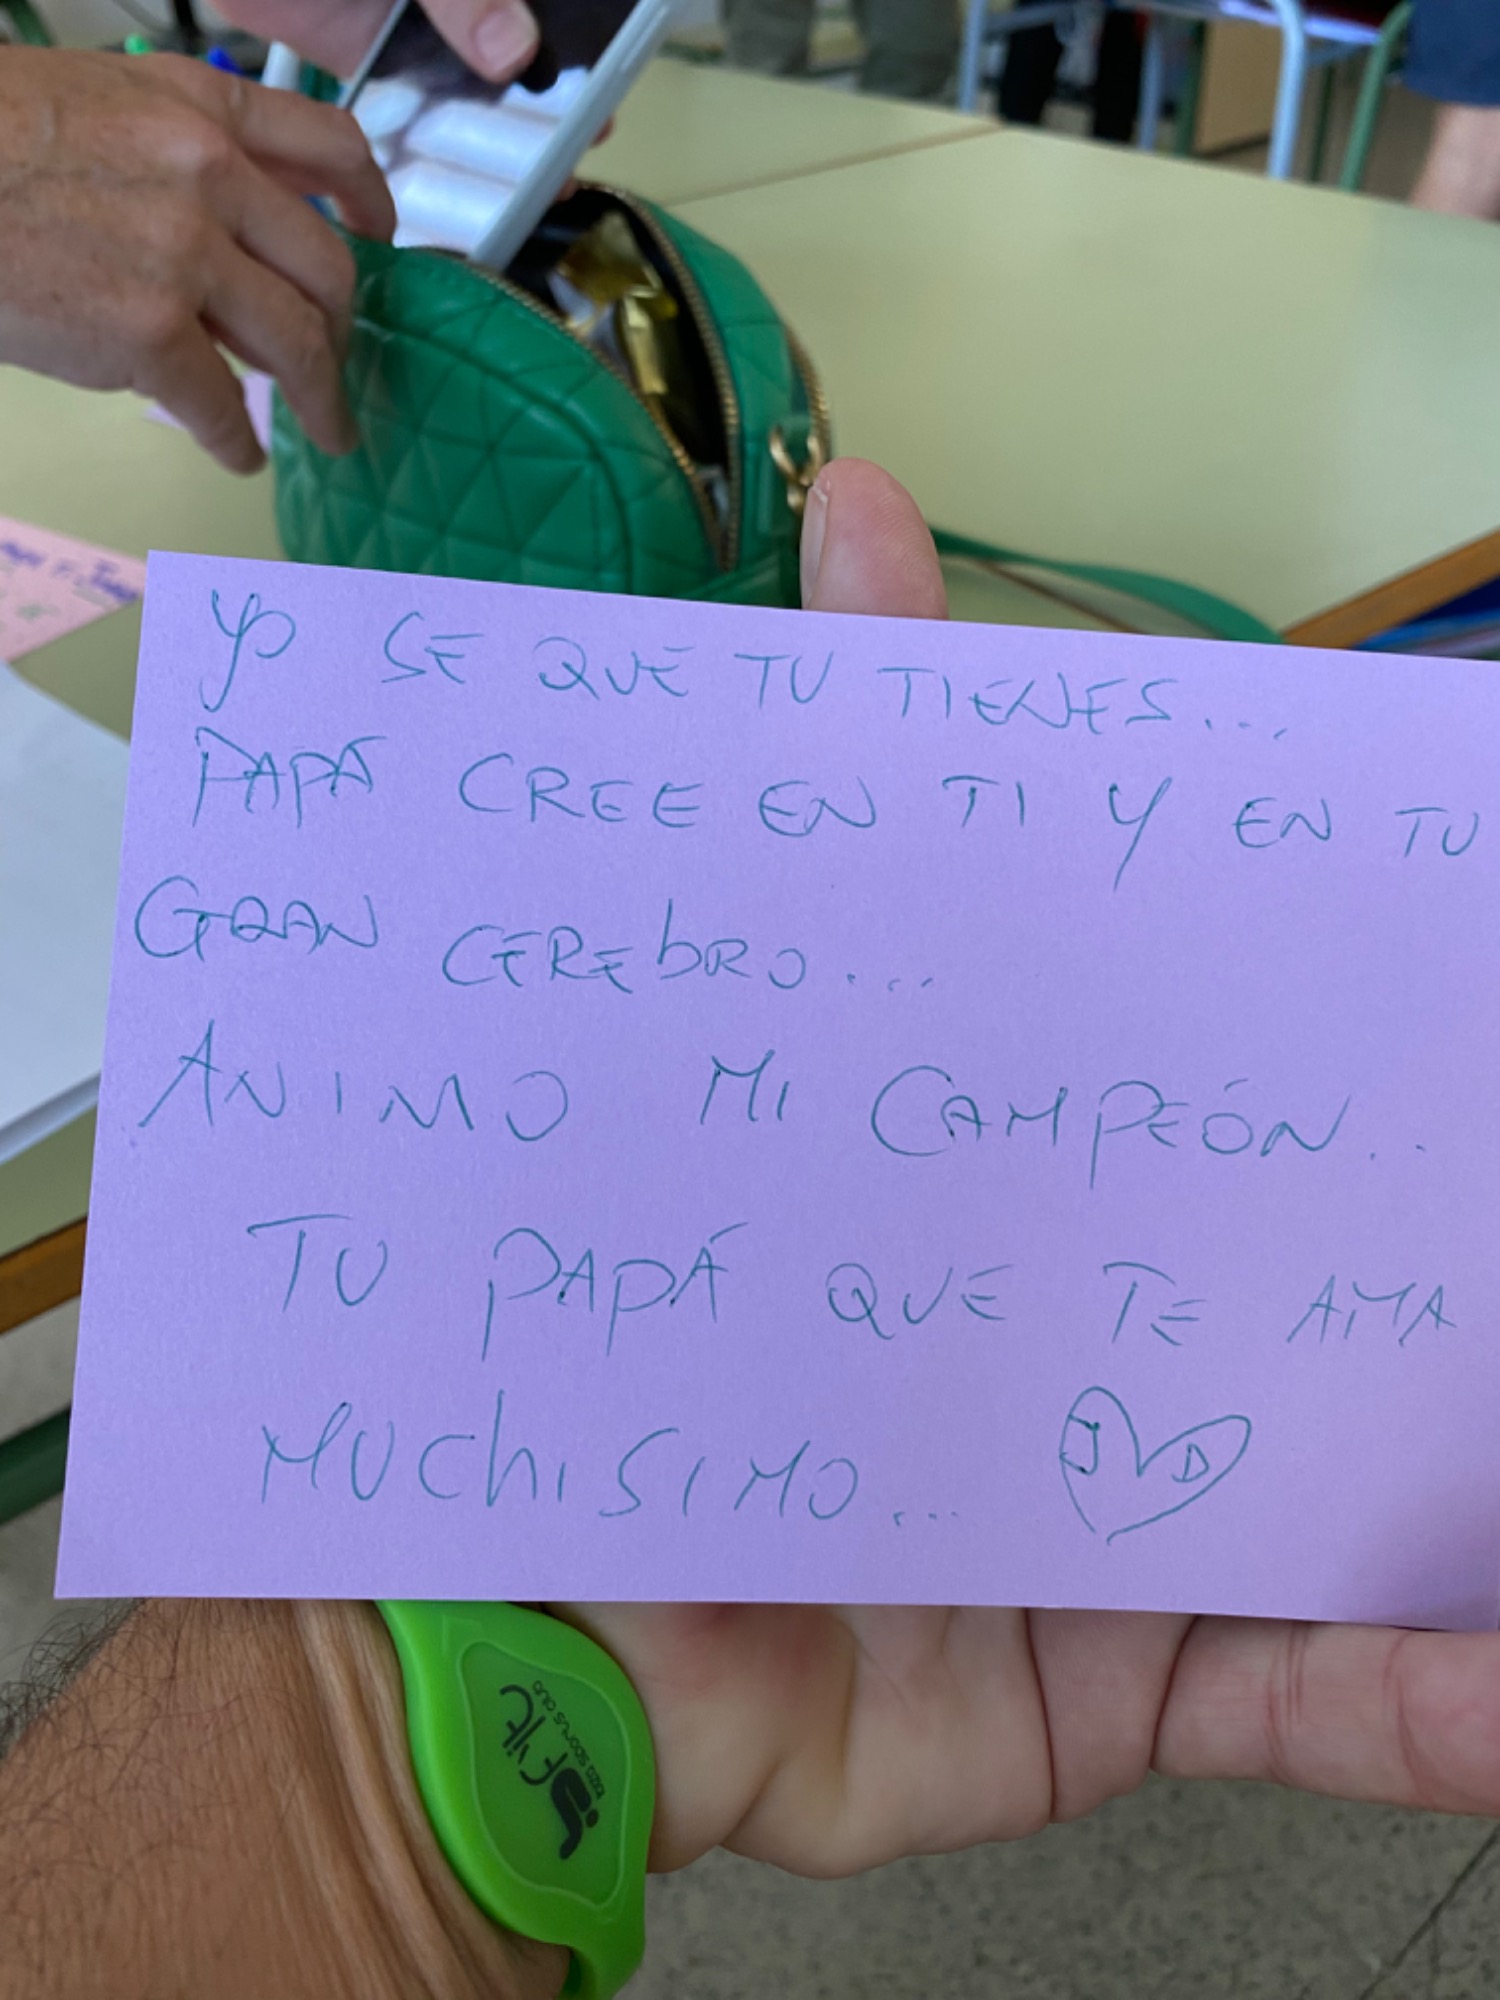 YO SE QUE TU TIENES...
PAPÁ CREE EN TI Y EN TU
GRAN CEREbRO...
ANIMO MI CAMPEÓN..
TU PAPÁ QUE TE AMA
MUChISIMO... J D
fit